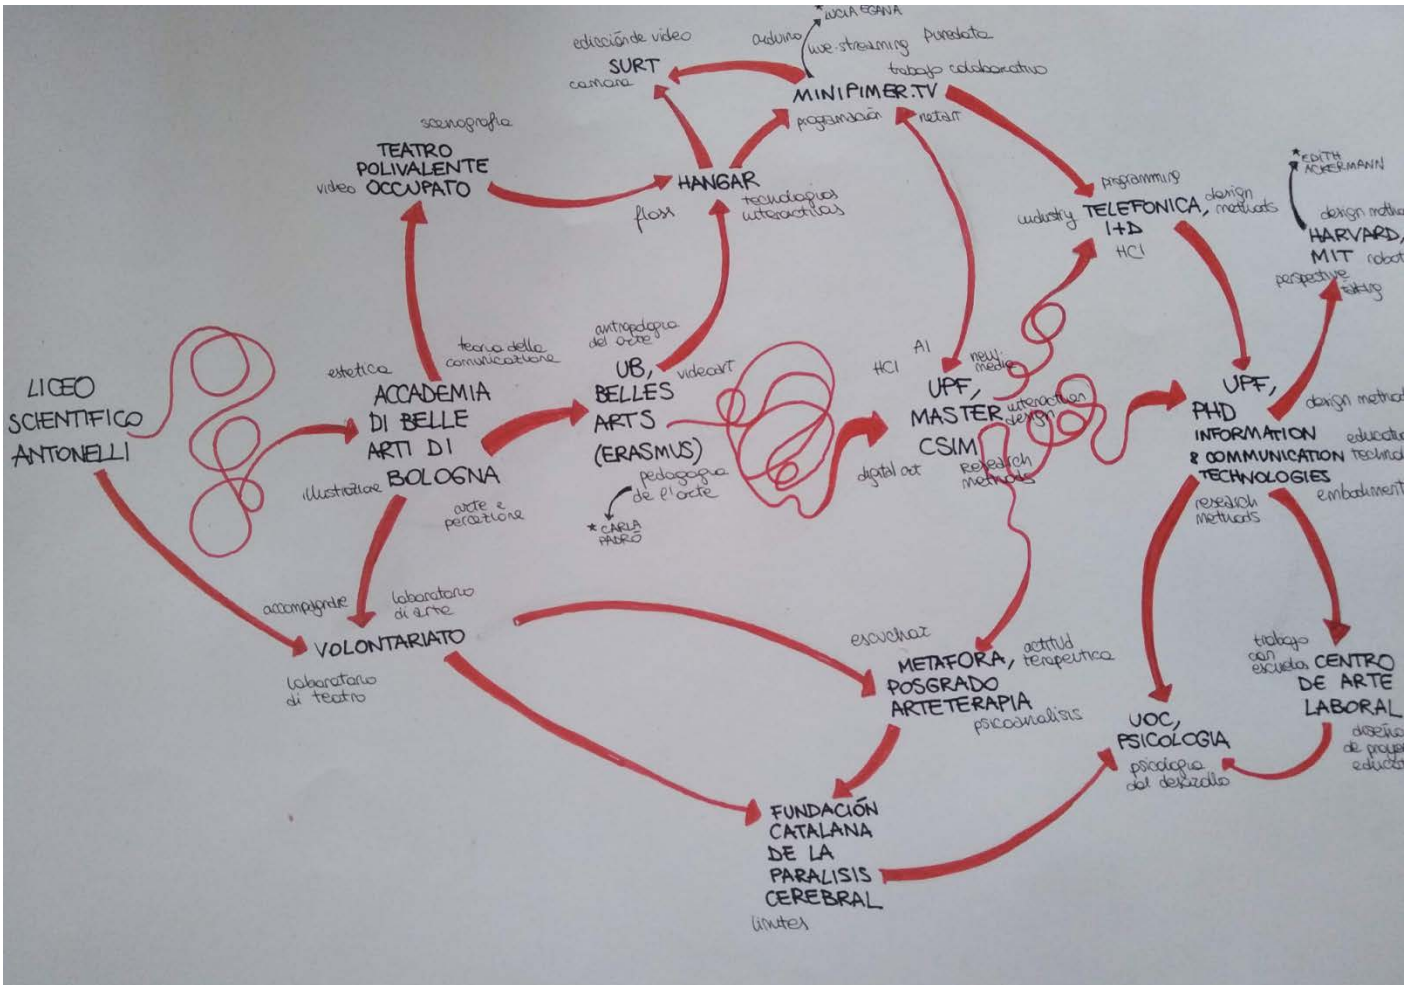 * LUCIA EGAÑA
edicción de video
arduino
live-streaming
puredata
SURT
camara
trabajo colaborativo
MINIPIMER.TV
programación
netart
scenografia
TEATRO
POLIVALENTE
video OCCUPATO
HANGAR
floss
tecnologias
interactivas
* EDITH
ACKERMANN
programming
industry TELEFONICA,
I+D
HCI
design
methods
design metho
HARVARD,
MIT robot
perspective
taking
LICEO
SCIENTIFICO
ANTONELLI
estetica
teoria della
comunicazione
ACCADEMIA
DI BELLE
ARTI DI
BOLOGNA
illustrazione
arte e
percezione
antropologia
del arte
UB,
BELLES
ARTS
(ERASMUS)
videoart
pedagogia
de l'arte
* CARLA
PADRÓ
AI
HCI
new
media
UPF,
MASTER
CSIM
interaction
design
digital art
Research
methods
UPF,
PHD
INFORMATION
& COMMUNICATION
TECHNOLOGIES
design method
educatio
technol
embodiment
research
methods
accompagnare
laboratorio
di arte
VOLONTARIATO
laboratorio
di teatro
escuchar
METAFORA,
POSGRADO
ARTETERAPIA
actitud
terapeutica
psicoanalisis
trabajo
con
escuelas
CENTRO
DE ARTE
LABORAL
diseño
de proye
educat
UOC,
PSICOLOGIA
psicologia
del desarollo
FUNDACIÓN
CATALANA
DE LA
PARALISIS
CEREBRAL
limites